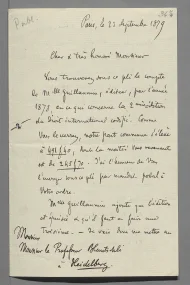 Paris, le 22 Septembre 1879
Cher & très honoré Monsieur
Vous trouverez sous ce pli le compte
de M. Guillaumin, éditeur, pour l'année
1878, en ce qui concerne la 2e édition
du Droit international codifié. Comme
Vous le verrez, notre part commune s'élève
à
dont la moitié vous revenant
est de
J'ai l'honneur de Vous
l'envoyer sous ce pli par mandat postal à
Votre ordre.
M. Guillaumin ajoute que l'édition
est épuisée & qu'il faut en faire une
troisième.
Monsieur
Monsieur le Professeur Bluntschli
Heidelberg